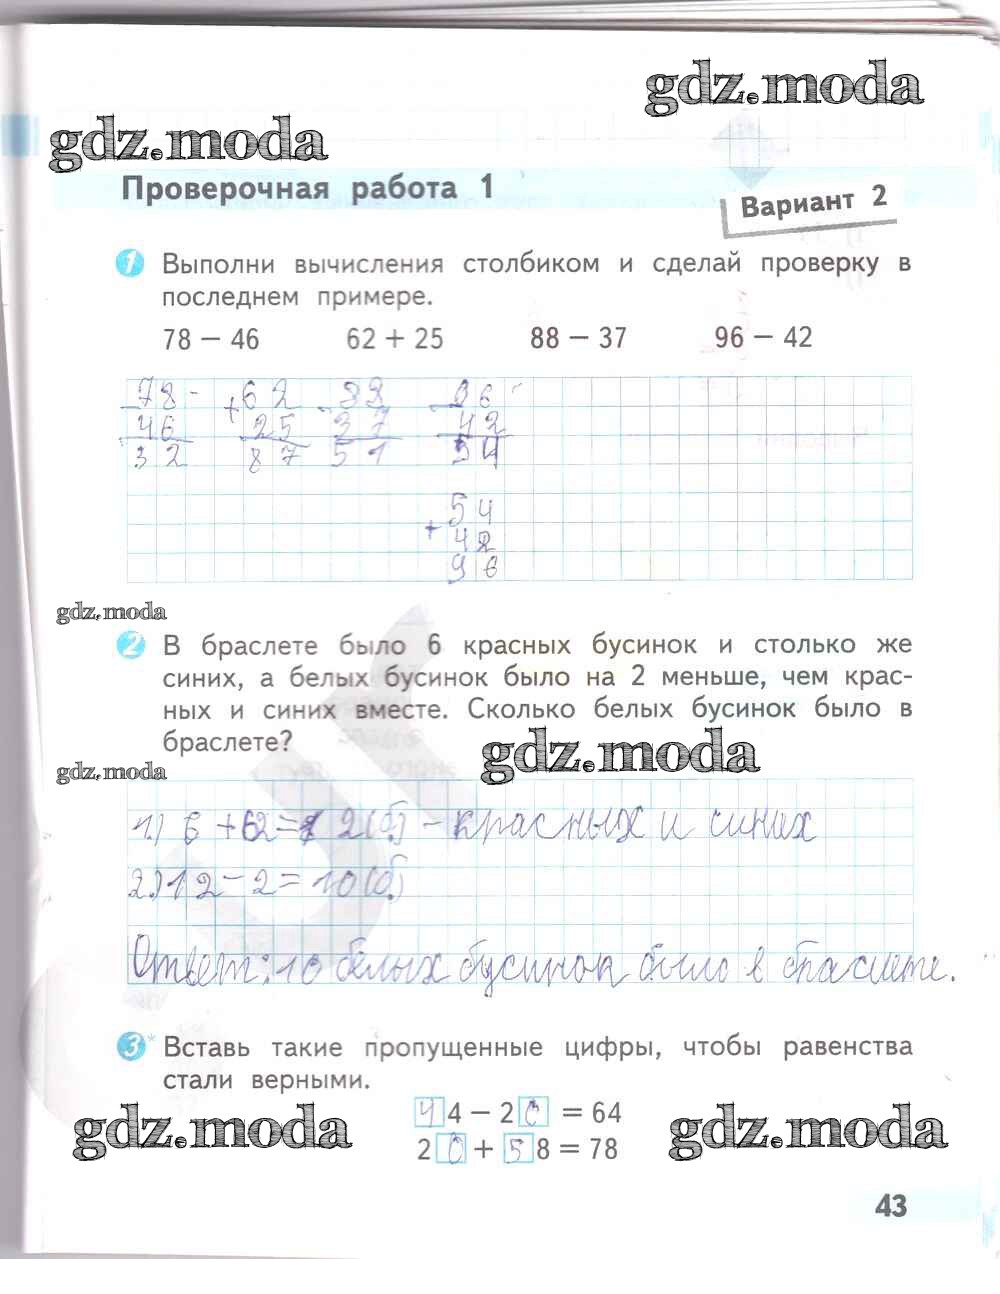 gdz.moda
gdz.moda
Проверочная работа 1
Вариант 2
1 Выполни вычисления столбиком и сделай проверку в
последнем примере.
78 − 46 62 + 25 88 − 37 96 − 42
78 + 62 88 96
46 25 37 42
32 87 51 54
54
+ 42
96
gdz.moda
2 В браслете было 6 красных бусинок и столько же
синих, а белых бусинок было на 2 меньше, чем крас-
ных и синих вместе. Сколько белых бусинок было в
браслете?
gdz.moda
gdz.moda
1.) 6 + 6 = 12 (б) - красных и синих
2.) 12 - 2 = 10 (б)
Ответ: 10 белых бусинок было в браслете.
3* Вставь такие пропущенные цифры, чтобы равенства
стали верными.
4 − 20 = 64
20 + 58 = 78
gdz.moda
gdz.moda
43